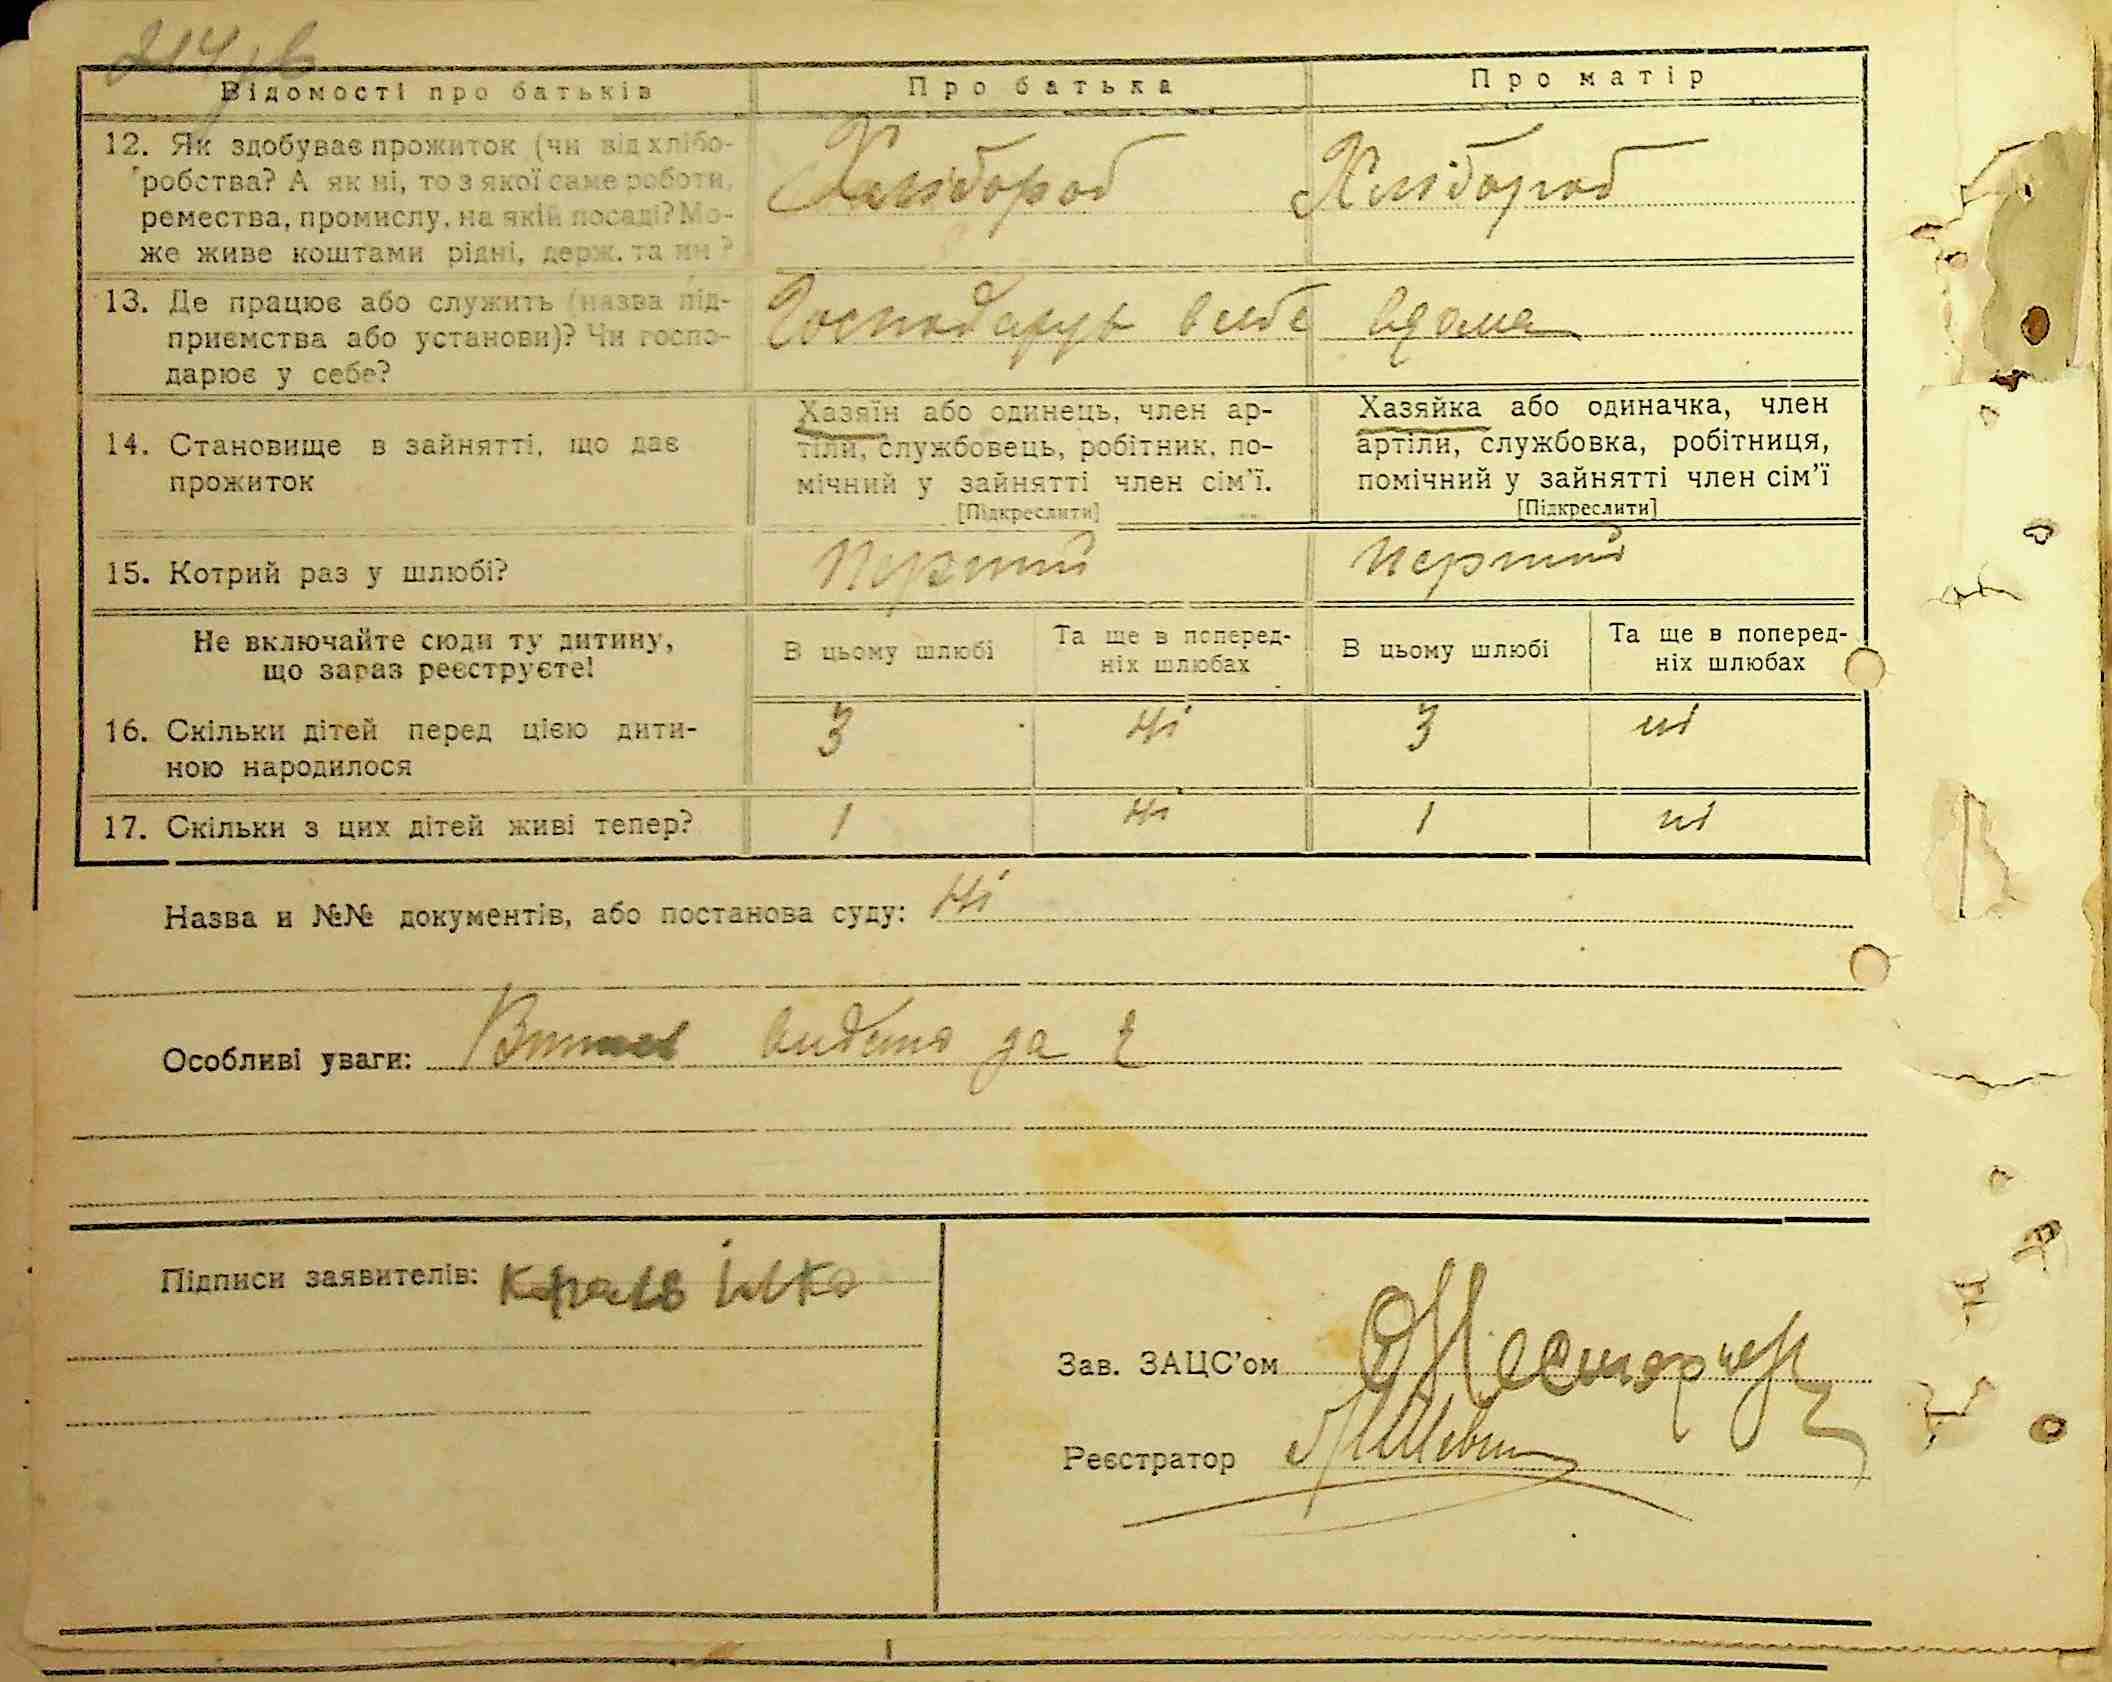 Відомості про батьків
Про батька
Про матір
12. Як здобуває прожиток (чи від хлібо-
робства? А як ні, то з якої саме роботи,
ремества, промислу, на якій посаді? Мо-
же живе коштами рідні, держ. та ин?
Хлібороб
Хлібороб
13. Де працює або служить (назва під-
приємства або установи)? Чи госпо-
дарює у себе?
Господарує в себе
вдома
14. Становище в зайнятті, що дає
прожиток
Хазяїн або одинець, член ар-
тіли, службовець, робітник, по-
мічний у зайнятті член сім'ї.
[Підкреслити]
Хазяйка або одиначка, член
артіли, службовка, робітниця,
помічний у зайнятті член сім'ї
[Підкреслити]
15. Котрий раз у шлюбі?
Перший
перший
Не включайте сюди ту дитину,
що зараз реєструєте!
В цьому шлюбі
Та ще в поперед-
ніх шлюбах
В цьому шлюбі
Та ще в поперед-
ніх шлюбах
16. Скільки дітей перед цією дити-
ною народилося
3
ні
3
ні
17. Скільки з цих дітей живі тепер?
1
ні
1
ні
Назва и №№ документів, або постанова суду: ні
Особливі уваги: видано за
Підписи заявителів: Король Ілко
Зав. ЗАЦС'ом
Реєстратор